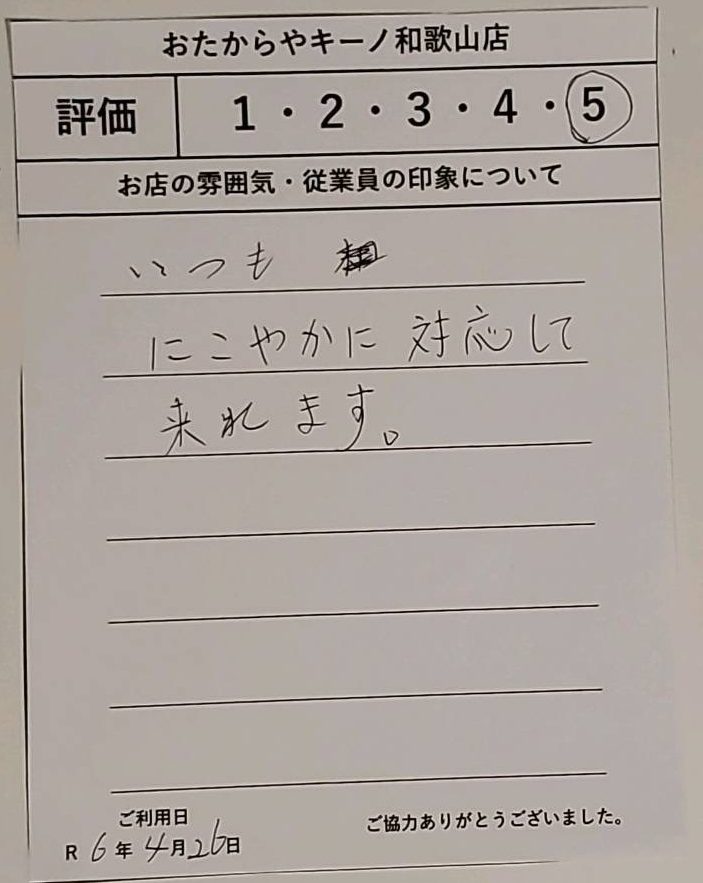 おたからやキーノ和歌山店
評価 1・2・3・4・5
お店の雰囲気・従業員の印象について
いつも
にこやかに対応して
来れます。
ご利用日
R6年4月26日
ご協力ありがとうございました。